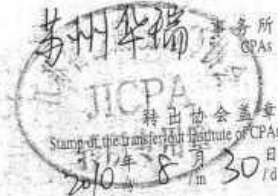 苏州华瑞 事务所
CPAs
JICPA
转出协会盖章
Stamp of the transfer-out Institute of CPAs
2010年 8月 30日
/y /m /d